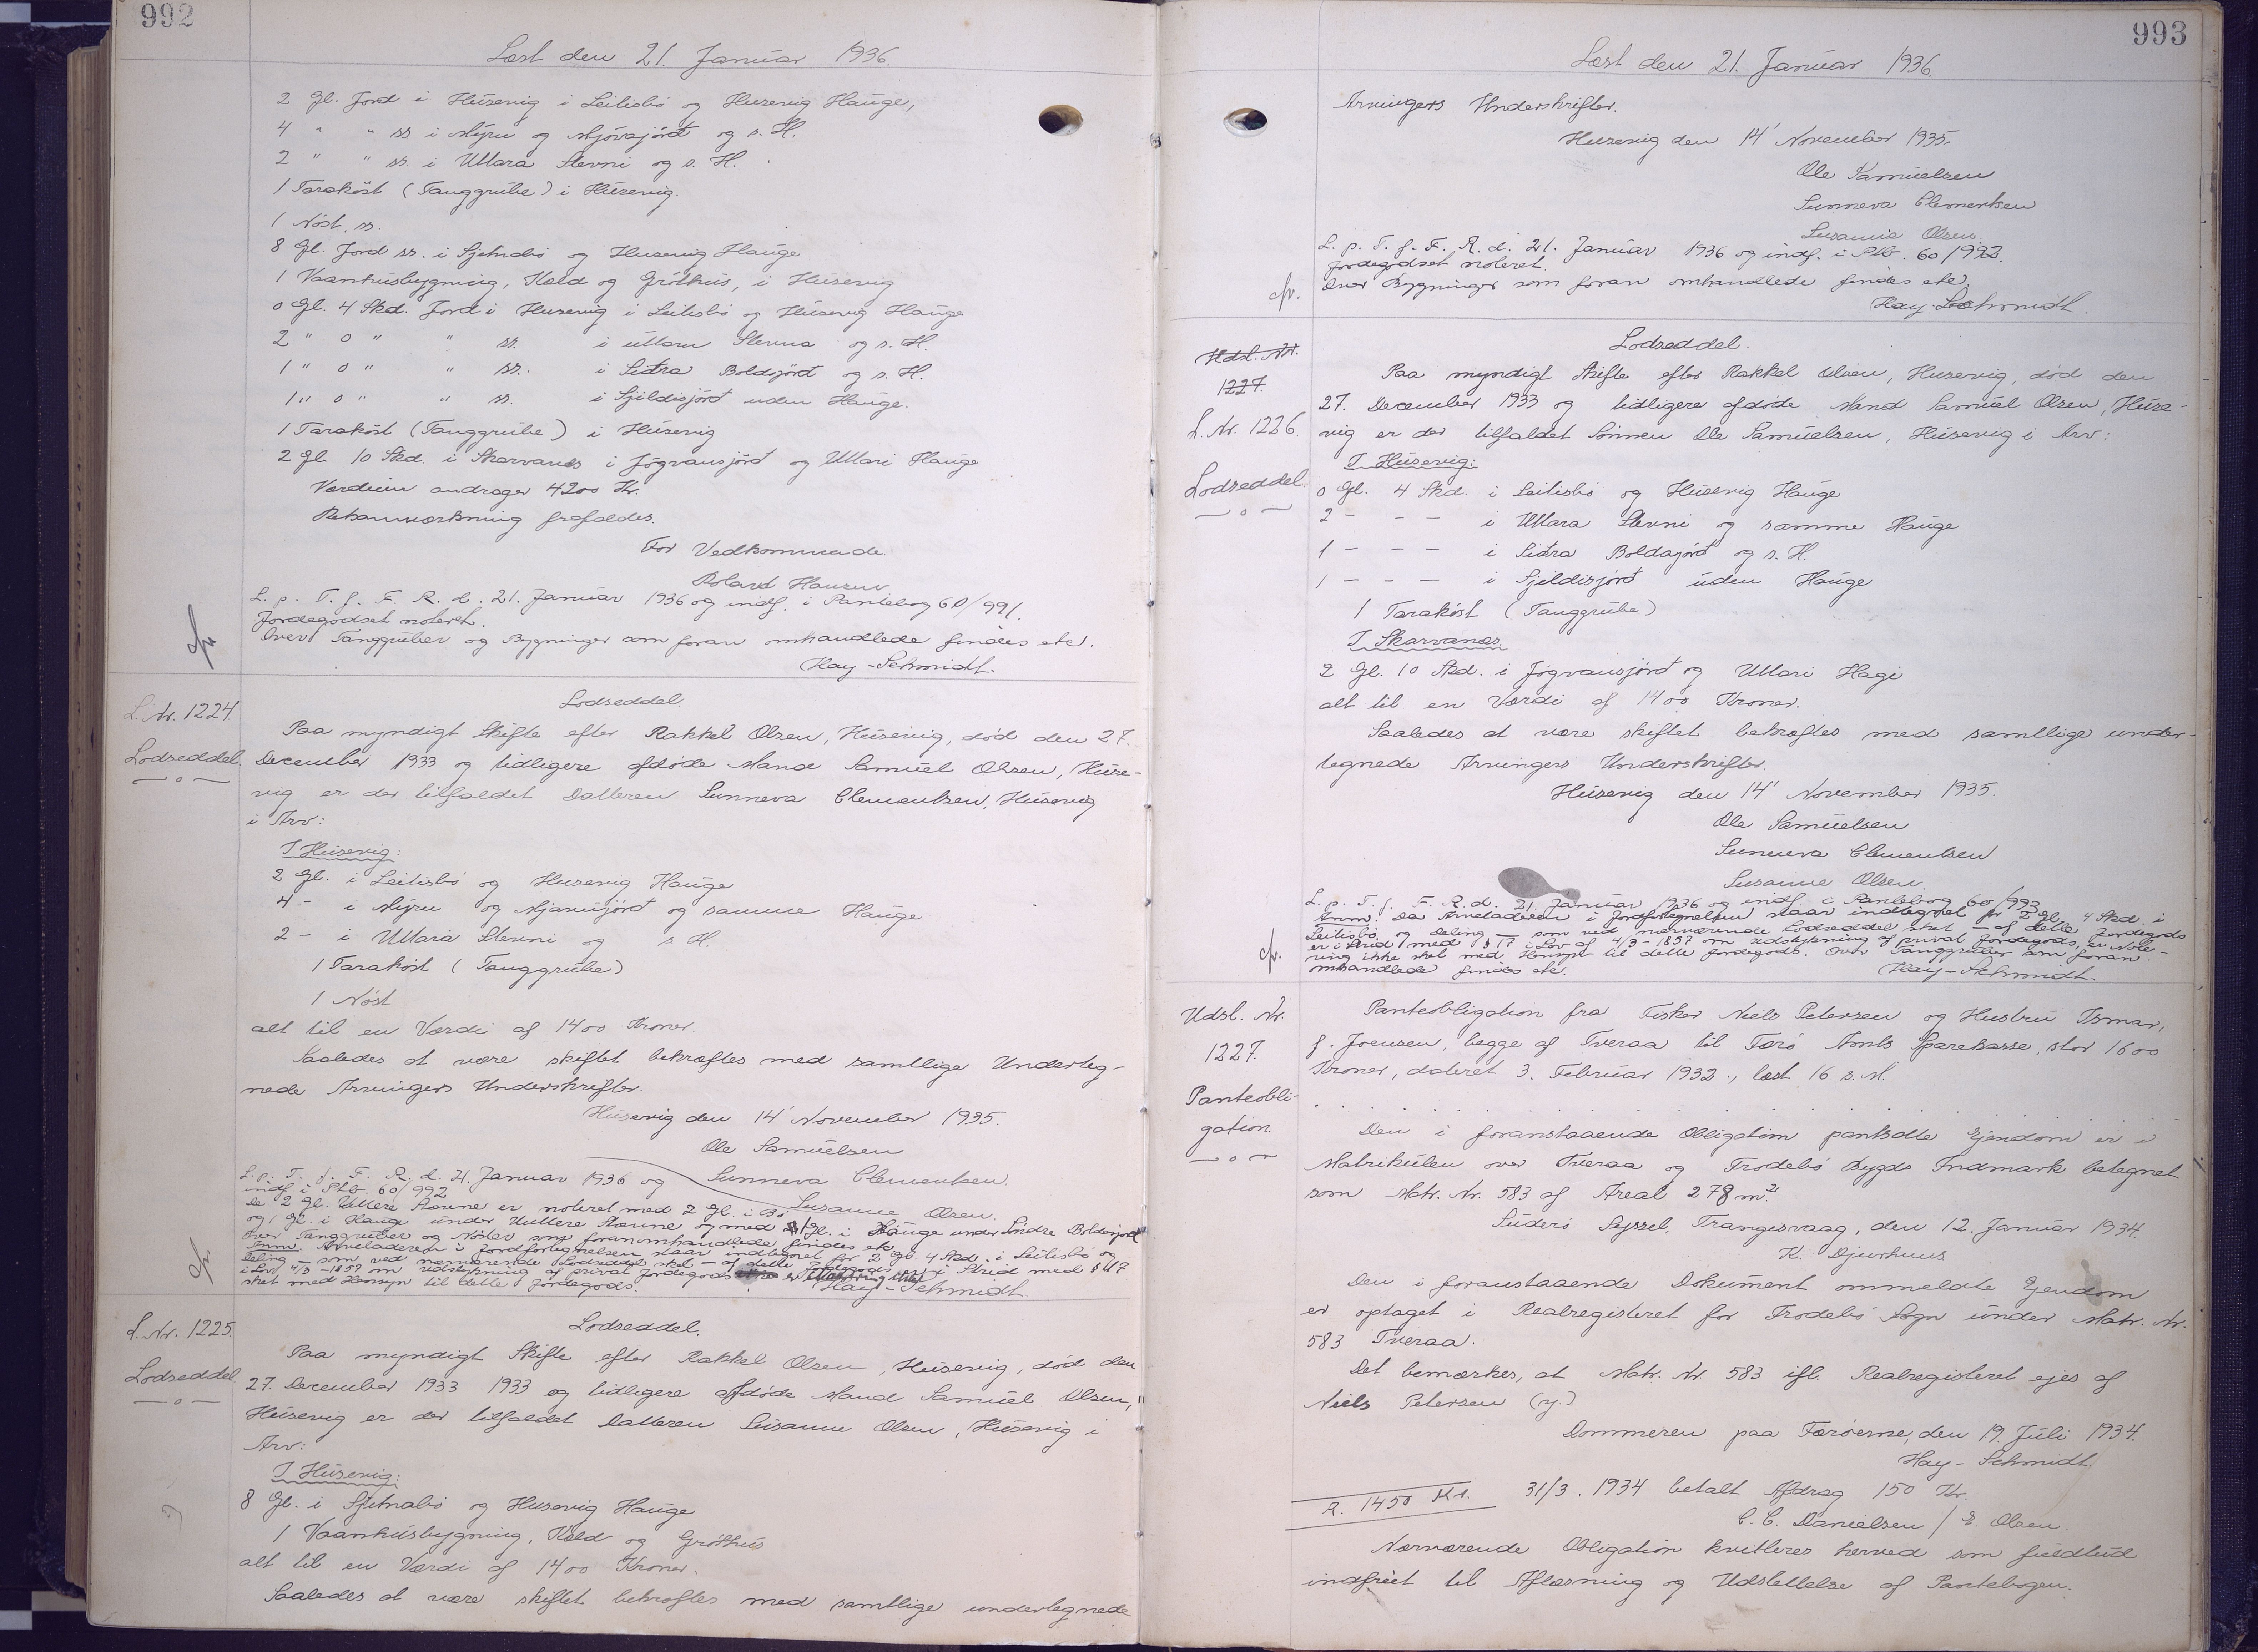 992
Læst den 21. Januar 1936.
2 Gl. Jord i Húsevig i Leitisbø og Husevig Hauge,
4 " " ss i Mýru og Mjóvajørð og s. H.
2 " " ss. i Uttara Stevni og s. H.
1 Taraköst (Tanggrube) i Húsevig.
1 Nøst ss.
8 Gl. Jord ss. i Sjetnabø og Husevig Hauge
1 Vaanhusbygning, Kæld og Gróthus, i Húsevig
0 Gl. 4 Skd. Jord i Husevig i Leitisbø og Húsevig Hauge
2 " 0 " " ss. i uttara Stevna og s. H.
1 " 0 " " ss. i Siðra Boldsjørð og s. H.
1 " 0 " " ss. i Sjildisjørð uden Hauge.
1 Taraköst (Tanggrube) i Húsevig
2 Gl 10 Skd. i Skarvanes i Jógvansjørð og Uttari Hauge
Værdien andrager 4200 Kr.
Bekanmærkning frafaldes.
For Vedkommende.
Roland Hansen
L. p. T. f. F. R. d. 21. Januar 1936 og indf. i Pantebog 60/991.
Jordegodset noteret.
Over Tanggruber og Bygninger som foran omhandlede findes etc.
cfr
Hay-Schmidt.
L. Nr. 1224.
Lodseddel.
Lodseddel.
Paa myndigt Skifte efter Rakkel Olsen, Húsevig, død den 27.
December 1933 og tidligere afdøde Mand Samuel Olsen, Húse-
vig er der tilfaldet Datteren Sunneva Clementsen, Húsevig
i Arv:
I Húsevig:
2 Gl. i Leitisbø og Husevig Hauge
4 - i Mýru og Mjavujørð og samme Hauge
2 - i Uttara Stevni og s H.
1 Taraköst (Tanggrube)
1 Nøst
alt til en Værdi af 1400 Kroner.
Saaledes at være skiftet bekræftes med samtlige Underteg-
nede Arvingers Underskrifter.
Húsevig den 14' November 1935.
Ole Samuelsen
Sunneva Clementsen.
Susanne Olsen.
L. p. T. f. F. R. d. 21. Januar 1936 og
indf. i Ptb. 60/992
De 2 Gl. Uttere Stevne er noteret med 2 Gl. i Bø
og 1 Gl. i Hauge under Uttere Stevne og med 1 Gl. i Hauge under Søndre Boldsjord
Over Tanggruber og Nøster som foranomhandlede findes etc.
Anm. Arveladeren i Jordfortegnelsen staar indtegnet for 2 Gl. 4 Skd. i Leitisbø og
Deling - som ved nærværende Lodseddel sket - af dette Jordegods er i Strid med § 17
i Lov 4/3 - 1857 om Udstykning af privat Jordegods er Notering ikke
sket med Hensyn til dette Jordegods.
cfr.
Hay-Schmidt.
L. Nr. 1225.
Lodseddel
Lodseddel.
Paa myndigt Skifte efter Rakkel Olsen, Húsevig, død den
27. December 1933 1933 og tidligere afdøde Mand Samuel Olsen,
Húsevig er der tilfaldet Datteren Susanne Olsen, Húsevig i
Arv:
I Húsevig:
8 Gl. i Sjetnabø og Husevig Hauge
1 Vaanhúsbygning, Kæld og Gróthús
alt til en Værdi af 1400 Kroner.
Saaledes at være skiftet bekræftes med samtlige undertegnede
993
Læst den 21. Januar 1936.
Arvingers Underskrifter.
Husevig den 14' November 1935.
Ole Samuelsen
Sunneva Clementsen
Susanna Olsen.
L. p. T. f. F. R. d. 21. Januar 1936 og indf. i Ptb. 60/992.
Jordegodset noteret.
Over Bygninger som foran omhandlede findes etc.
cfr.
Hay-Schmidt.
Udsl. Nr.
1227.
L. Nr. 1226.
Lodseddel.
Lodseddel.
Paa myndigt Skifte efter Rakkel Olsen, Husevig, død den
27. December 1933 og tidligere afdøde Mand Samuel Olsen, Húse-
vig er der tilfaldet Sønnen Ole Samuelsen, Húsevig i Arv:
I Húsevig:
0 Gl. 4 Skd. i Leitisbø og Húsevig Hauge
2 - - - i Uttara Stevni og samme Hauge
1 - - - i Siðra Boldajørð og s. H.
1 - - - i Sjildisjørð uden Hauge
1 Taraköst (Tanggrube)
I Skarvanes
2 Gl. 10 Skd. i Jógvansjørð og Uttari Hagi
alt til en Værdi af 1400 Kroner.
Saaledes at være skiftet bekræftes med samtlige under-
tegnede Arvingers Underskrifter.
Húsevig den 14' November 1935.
Ole Samuelsen
Sunneva Clementsen
Susanne Olsen
L. p. T. f. F. R. d. 21. Januar 1936 og indf. i Pantebog 60/993
Anm. Da Arveladeren i Jordfortegnelsen staar indtegnet for 2 Gl. 4 Skd. i
Leitisbø og Deling - som ved nærværende Lodseddel sket - af dette Jordegods
er i Strid med § 17 i Lov af 4/3 - 1857 om Udstykning af privat Jordegods, er Note-
ring ikke sket med Hensyn til dette Jordegods. Over Tanggruber som foran-
omhandlede findes etc.
cfr.
Hay-Schmidt.
Udsl. Nr.
1227.
Panteobli-
gation.
Panteobligation fra Fisker Niels Petersen og Hustru Ismar,
f. Joensen, begge af Tveraa til Færø Amts Sparekasse, stor 1600
Kroner, dateret 3. Februar 1932., læst 16 s. M.
Den i foranstaaende Obligation pantsatte Ejendom er i
Matrikulen over Tveraa og Frodebø Bygds Indmark betegnet
som Matr. Nr. 583 af Areal 278 m².
Suderø Syssel, Trangesvaag, den 12. Januar 1934.
K. Djurhuus
Den i foranstaaende Dokument ommeldte Ejendom
er optaget i Realregisteret for Frodebø Sogn under Matr. Nr.
583 Tveraa.
Det bemærkes, at Matr. Nr. 583 ifl. Realregisteret ejes af
Niels Petersen (y.)
Dommeren paa Færøerne, den 19. Juli 1934.
Hay-Schmidt
R. 1450 Kr. 31/3. 1934 betalt Afdrag 150 Kr.
C. C. Danielsen / E. Olsen.
Nærværende Obligation kvitteres herved som fuldtud
indfriet til Aflæsning og Udslettelse af Pantebogen.